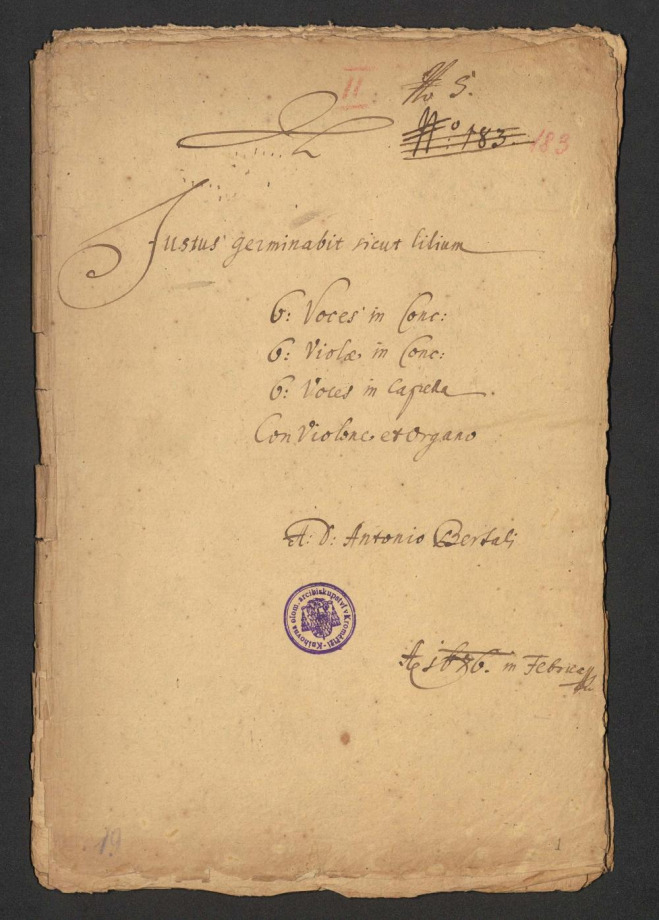 II.
No 5.
No 183. 183
Justus germinabit sicut lilium
6: Voces in Conc:
6: Violæ in Conc:
6: Voces in Capella.
Con Violone et Organo
A: D: Antonio Bertali
Knihovna olom. arcibiskupství v Kroměříži
in
19
1